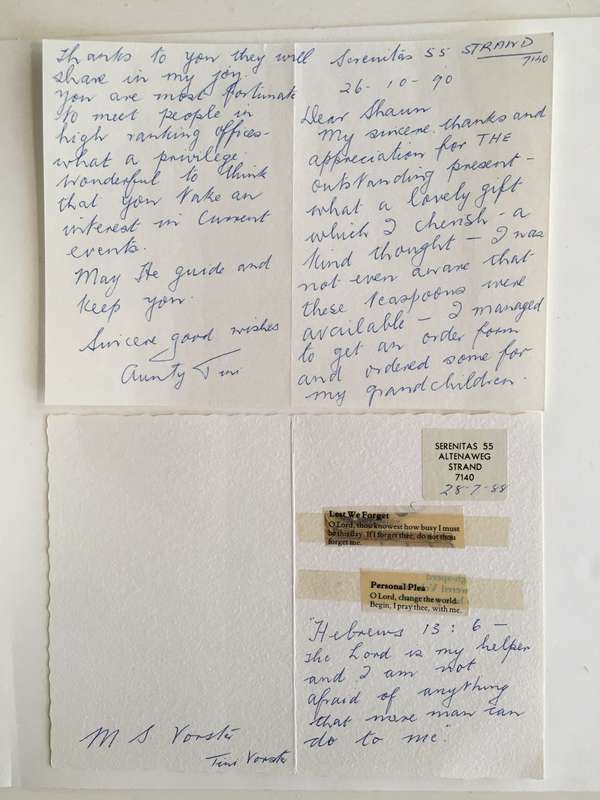 Serenitas 55 STRAND
7140
26-10-90
Dear Shaun
My sincere thanks and
appreciation for THE
outstanding present -
what a lovely gift
which I cherish - a
kind thought - I was
not even aware that
these teaspoons were
available - I managed
to get an order form
and ordered some for
my grandchildren.
Thanks to you they will
share in my joy.
You are most fortunate
to meet people in
high ranking offices -
what a privilege.
Wonderful to think
that you take an
interest in current
events.
May He guide and
keep you.
Sincere good wishes
Aunty Tini
SERENITAS 55
ALTENAWEG
STRAND
7140
28-7-88
Lest We Forget
O Lord, thou knowest how busy I must
be this day. If I forget thee, do not thou
forget me.
Personal Plea
O Lord, change the world.
Begin, I pray thee, with me.
"Hebrews 13:6 -
The Lord is my helper
and I am not
afraid of anything
that mere man can
do to me"
M S Vorster
Tini Vorster